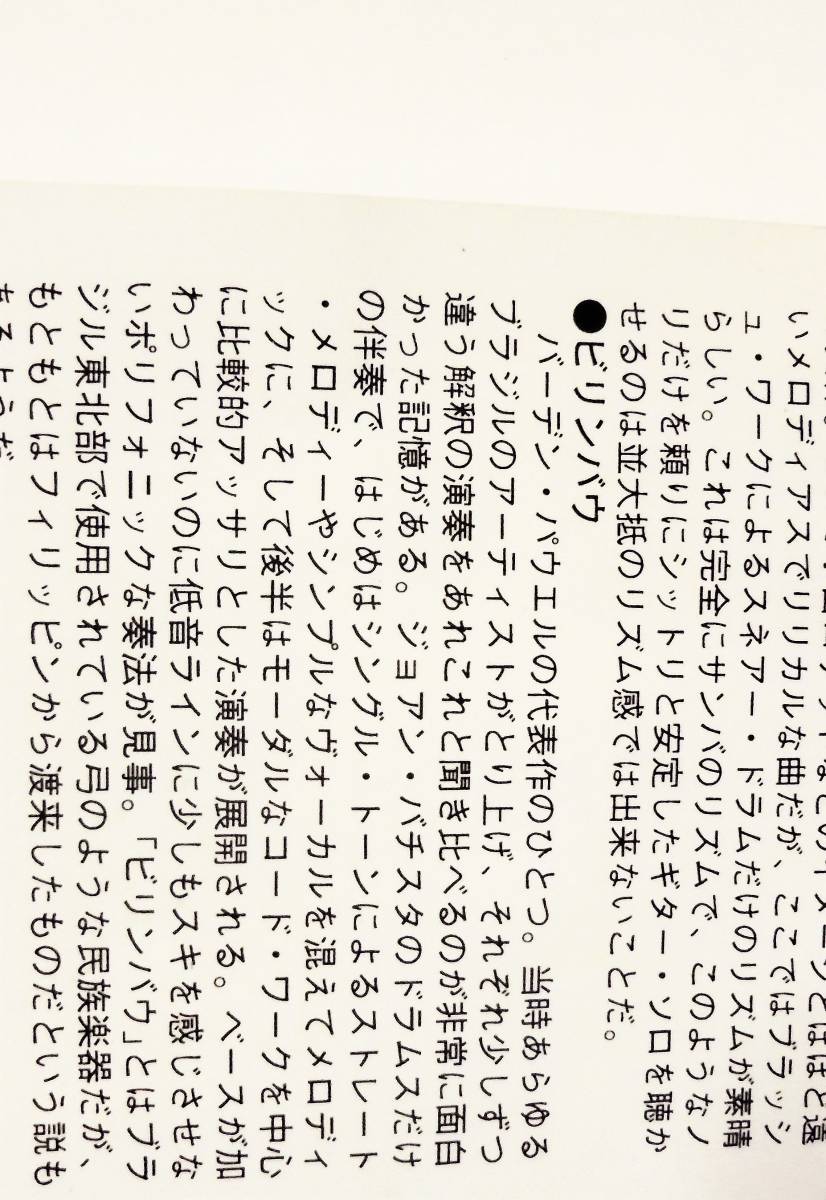 いメロディアスでリリカルな曲だが、ここではブラッシ
ュ・ワークによるスネアー・ドラムだけのリズムが素晴
らしい。これは完全にサンバのリズムで、このようなノ
リだけを頼りにシットリと安定したギター・ソロを聴か
せるのは並大抵のリズム感では出来ないことだ。
●ビリンバウ
バーデン・パウエルの代表作のひとつ。当時あらゆる
ブラジルのアーティストがとり上げ、それぞれ少しずつ
違う解釈の演奏をあれこれと聞き比べるのが非常に面白
かった記憶がある。ジョアン・バチスタのドラムスだけ
の伴奏で、はじめはシングル・トーンによるストレート
・メロディーやシンプルなヴォーカルを混えてメロディ
ックに、そして後半はモーダルなコード・ワークを中心
に比較的アッサリとした演奏が展開される。ベースが加
わっていないのに低音ラインに少しもスキを感じさせな
いポリフォニックな奏法が見事。「ビリンバウ」とはブラ
ジル東北部で使用されている弓のような民族楽器だが、
もともとはフィリッピンから渡来したものだという説も
あるようだ